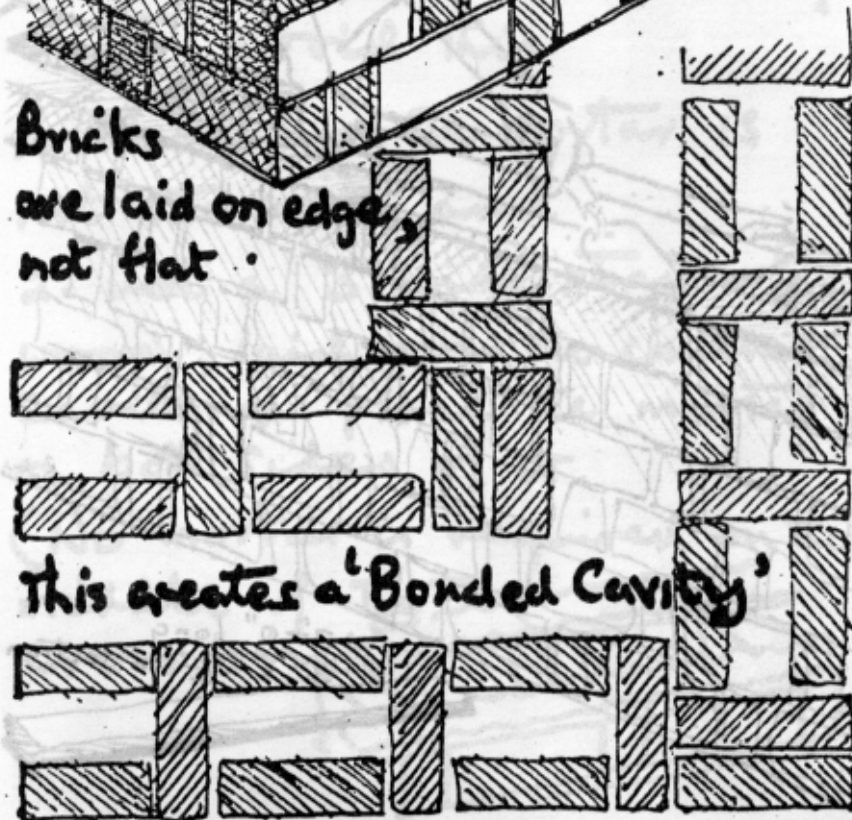 Bricks
are laid on edge,
not flat.
This creates a 'Bonded Cavity'